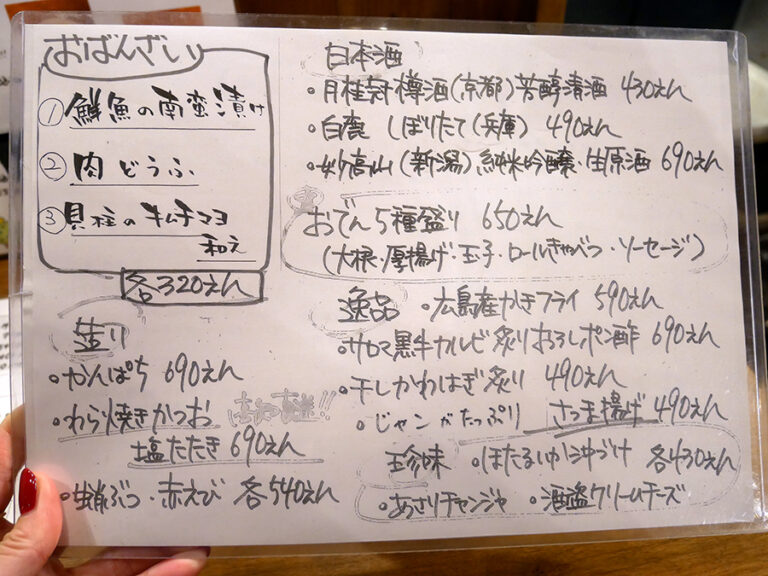 おばんざい
① 鮮魚の南蛮漬け
② 肉どうふ
③ 貝柱のキムチマヨ
和え
各320えん
造り
・かんぱち 690えん
・わら焼きかつお
塩たたき 690えん
・蛸ぶつ・赤えび 各540えん
日本酒
・月桂冠 樽酒(京都)芳醇清酒 430えん
・白鹿 しぼりたて(兵庫) 490えん
・妙高山(新潟)純米吟醸・生原酒 690えん
おでん5種盛り 650えん
(大根・厚揚げ・玉子・ロールきゃべつ・ソーセージ)
逸品 ・広島産かきフライ 590えん
・サロマ黒牛カルビ炙りおろしポン酢 690えん
・干しかわはぎ炙り 490えん
・ジャンがたっぷり さつま揚げ 490えん
珍味 ・ほたるいか沖づけ 各430えん
・あさりチャンジャ ・酒盗クリームチーズ